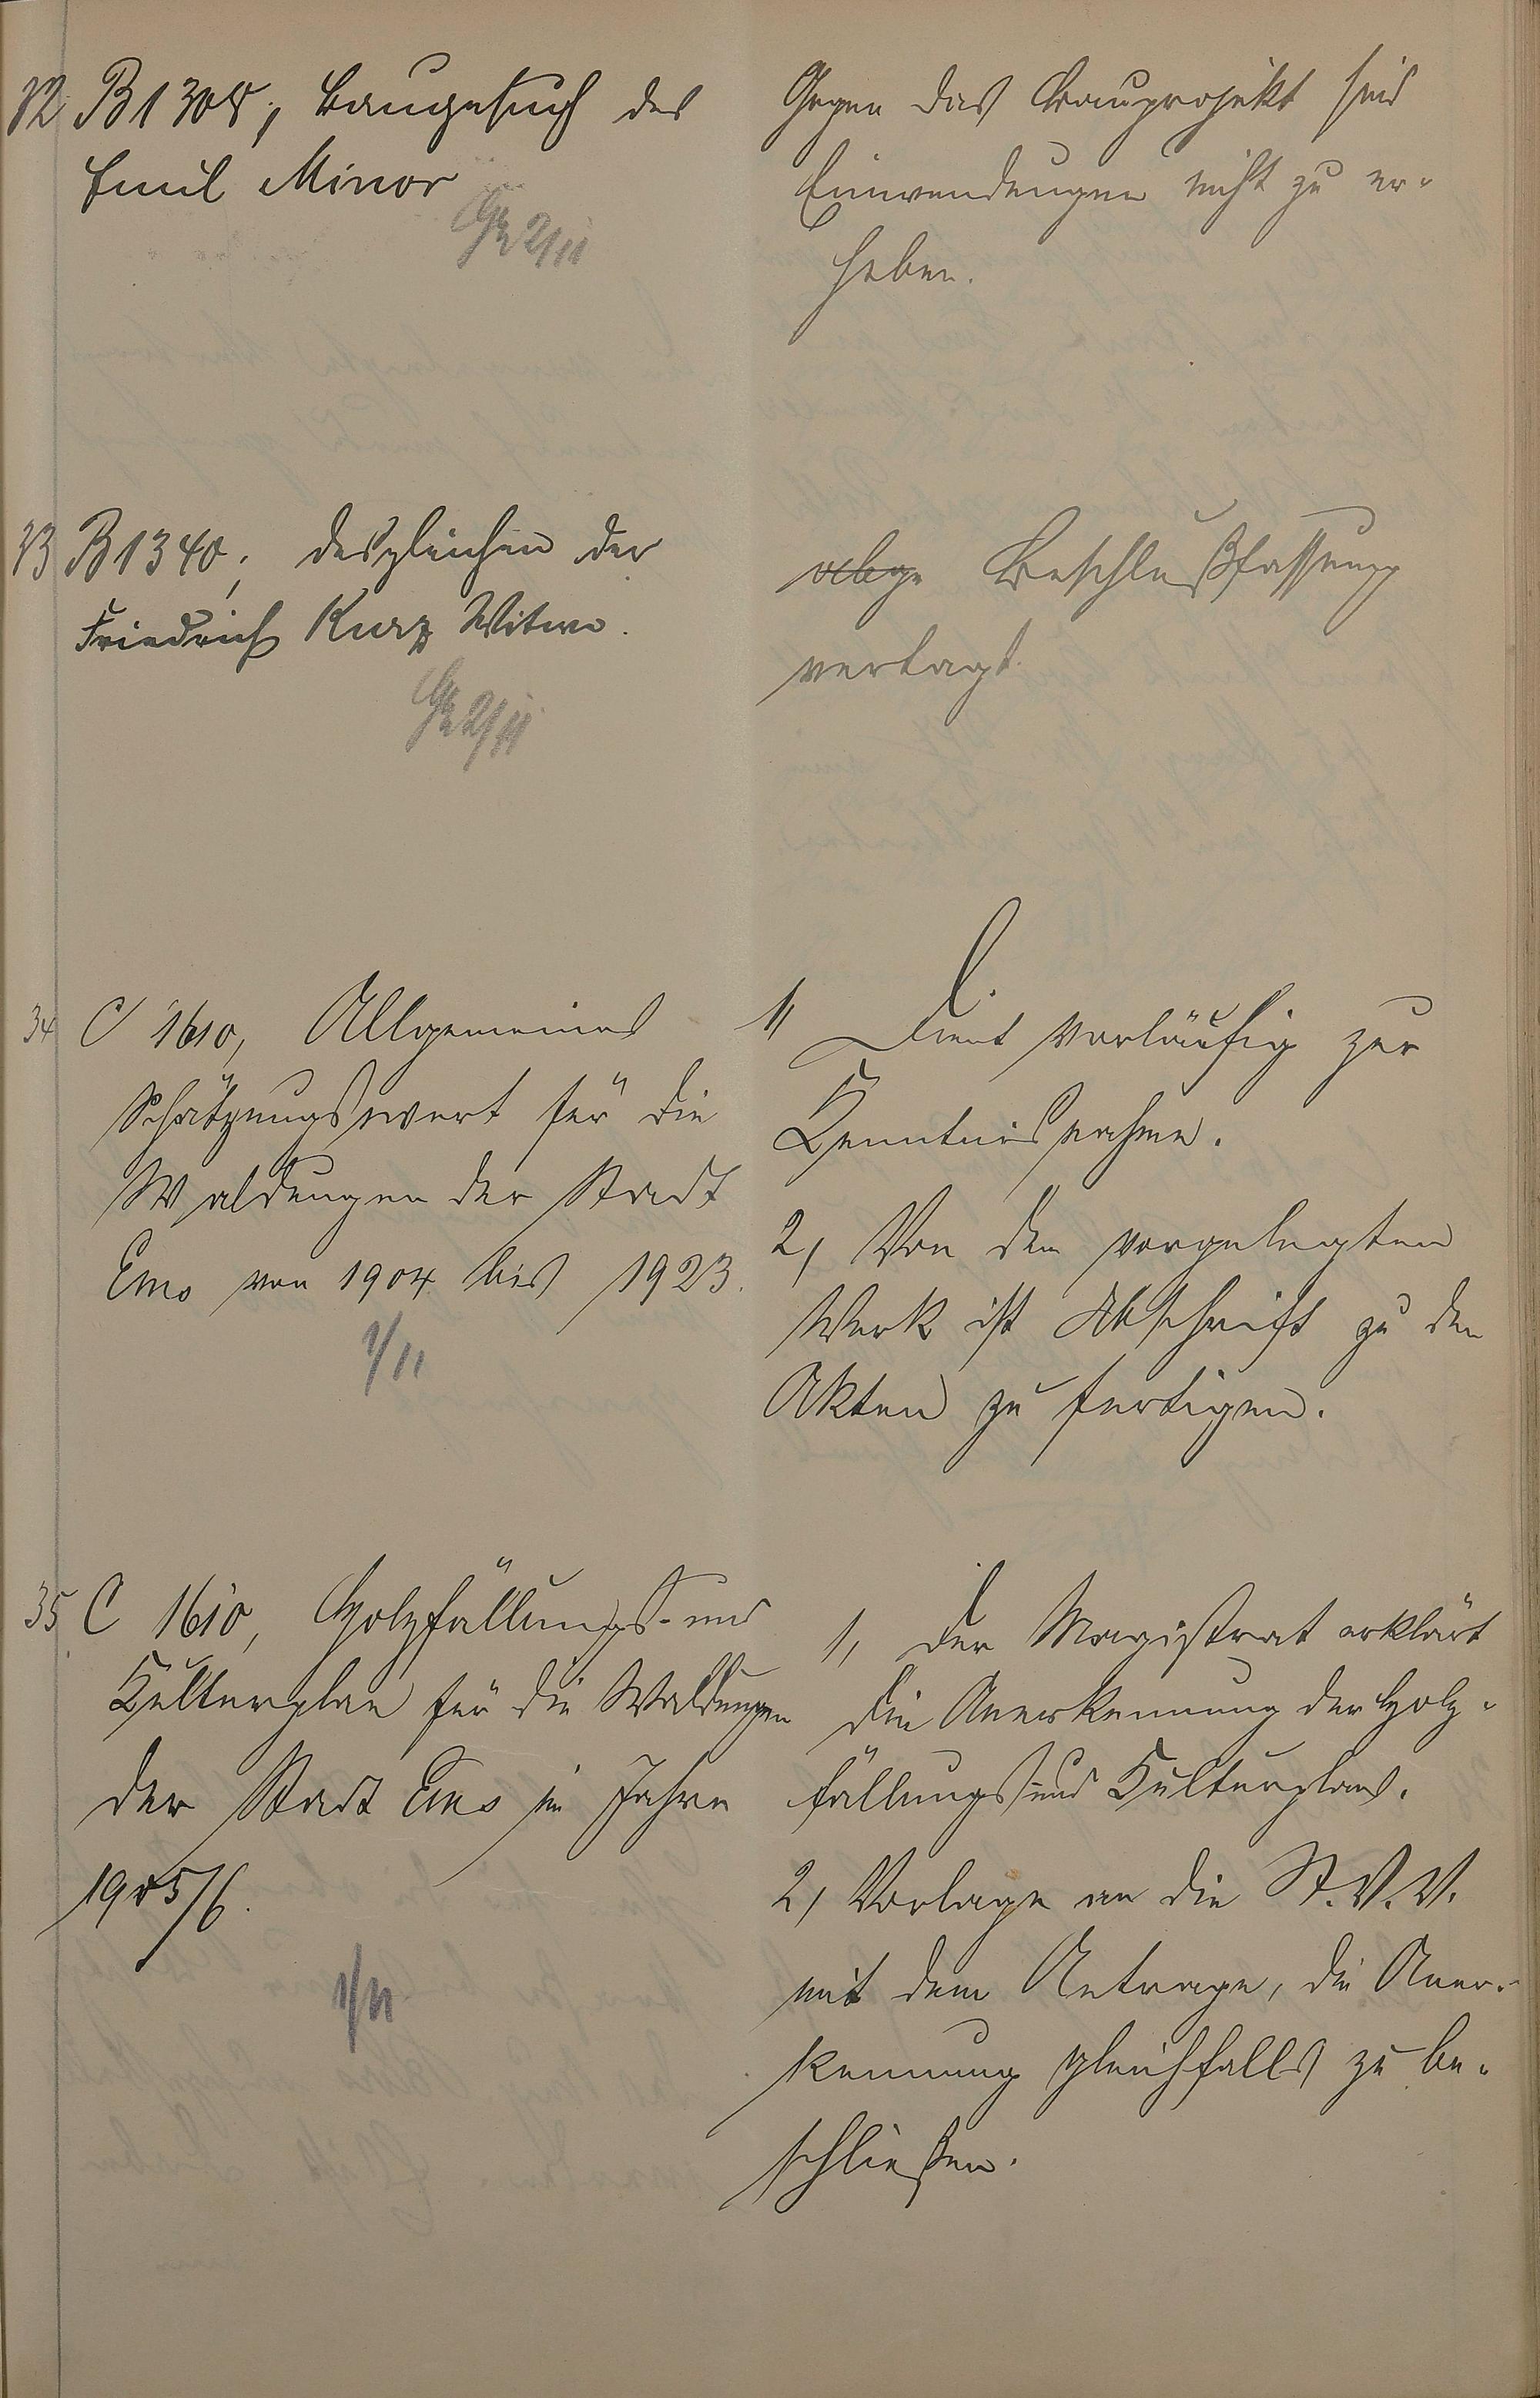 32 B 1305, Baugesuch des
Emil Minor
2/11
Gegen das Bauprojekt sind
Einwendungen nicht zu er-
heben.
33 B 1340, desgleichen der
Friedrich Kurz Witwe.
2/11
abge Beschlußfassung
vertagt.
34 C 1610, Allgemeines
Schätzungswert für die
Waldungen der Stadt
Ems von 1904 bis 1923.
1/11
1, Dient vorläufig zur
Kenntnisnahme.
2, Von dem vorgelegten
Werk ist Abschrift zu den
Akten zu fertigen.
35 C 1610, Holzfällungs- und
Kulturplan für die Waldungen
der Stadt Ems im Jahre
1905/6.
1/11
1, Der Magistrat erklärt
die Anerkennung der Holz-
fällungs- und Kulturplans.
2, Vorlage an die St.V.V.
mit dem Antrage, die Aner-
kennung gleichfalls zu be-
schließen.